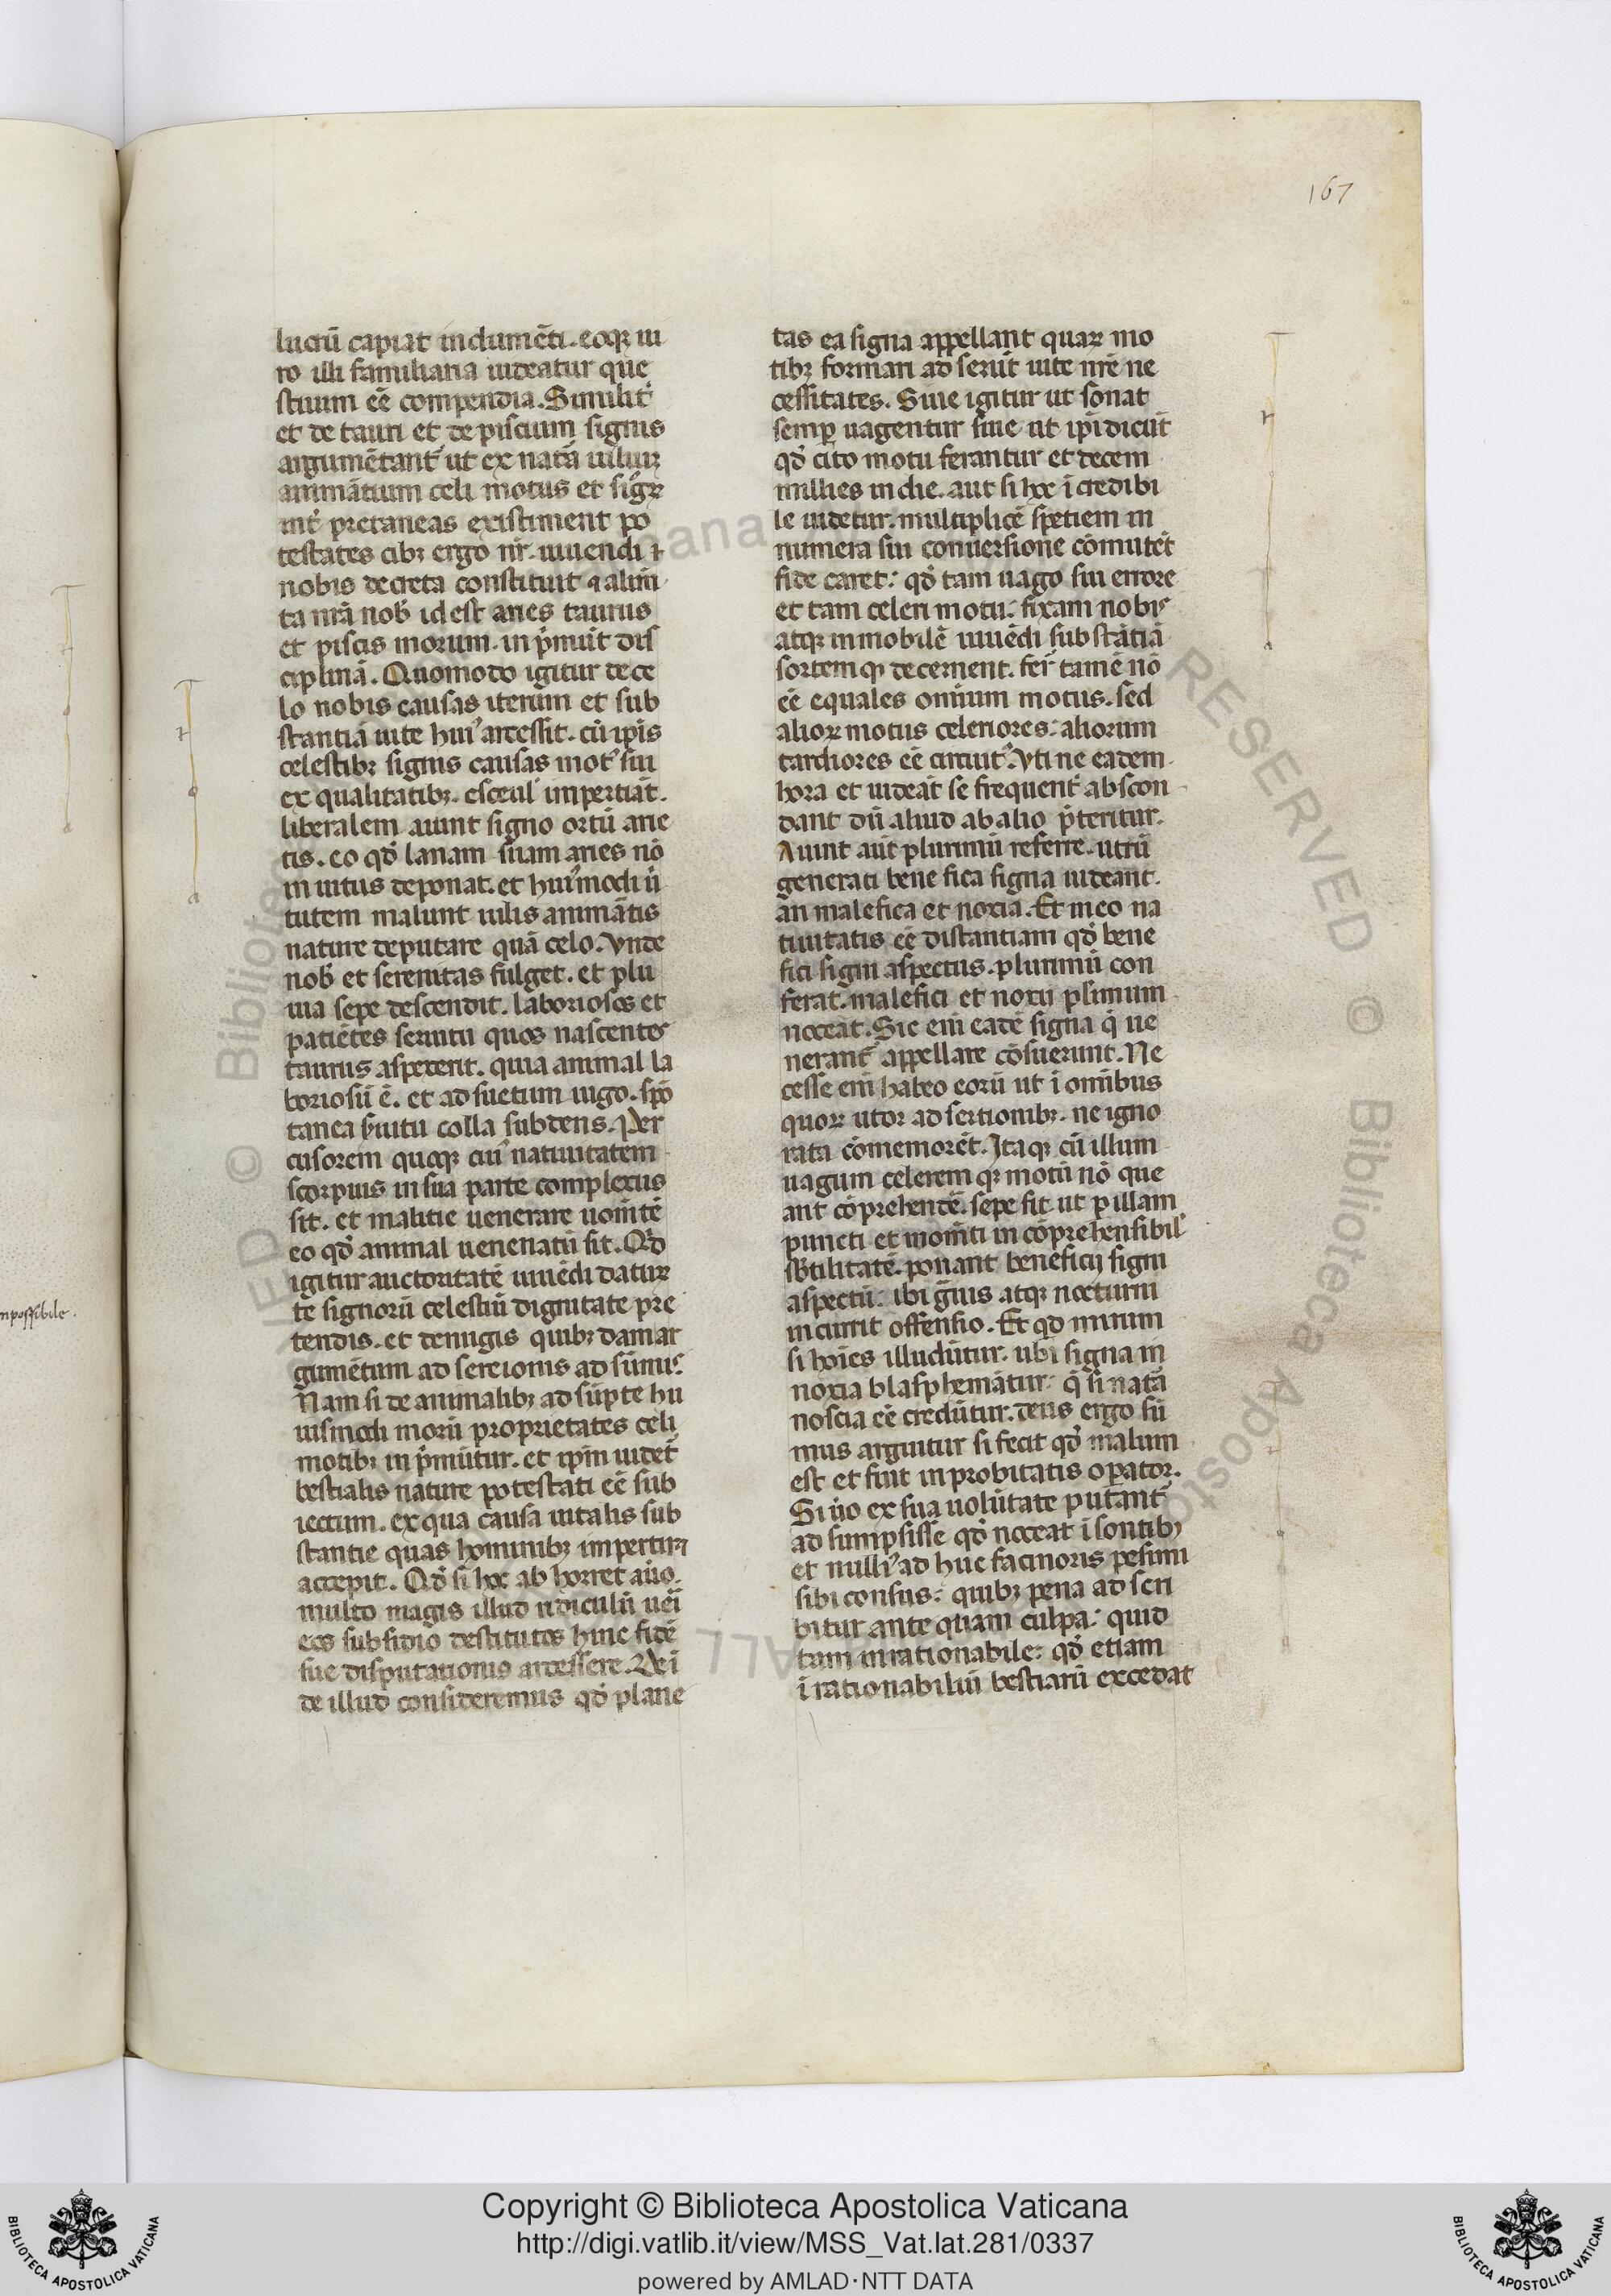 167
lucrũ capiat indumẽti. eoqꝫ ui
ro illi familiaria uideatur que
stuum eẽ compendia. Similit̉
et de tauri et de piscium signis
argumẽtant᷑ ut ex natã uiliuꝝ
animãtium celi motus et sigꝝ
int̉pretaneas existiment po
testates cibꝫ ergo nr̃. uiuendi
nobis decreta constituit ⁊ alim̃
ta nrã nob̉ id est aries taurus
et piscis morum. inp̉mũt dis
ciplinã. Quomodo igitur de ce
lo nobis causas iterum et sub
stantiã uite huiꝰ arcessit. cũ ip̃is
celestibꝫ signis causas motꝰ sui
ex qualitatibꝫ. esceul̉ impertiãt.
liberalem aiunt signo ortũ arie
tis. eo qđ lanam suam aries nõ
inuitus deponat. et huiꝰmodi ũ
tutem malunt uilis animãtis
nature deputare quã celo. Vnde
nob̉ et serenitas fulget. et plu
uia sepe descendit. laboriosos et
patiẽtes seruitii quos nascentes
taurus aspexerit. quia animal la
boriosũ ẽ. et adsuetum iugo. spõ
tanea s̉uitu colla subdens. Per
cusorem quoqꝫ cuiꝰ natiuitatem
scorpius in sua parte complexus
sit. et malitie uenerare uomĩtẽ
eo qđ animal uenenatũ sit. Qđ
igitur auctoritatẽ uiuẽdi datuꝝ
te signorũ celestiũ dignitate pre
tendis. et de nugis quibꝫdam ar
gumẽtum adsercionis adsũmis.
Nam si de animalibꝫ adsũpte hu
iusmodi morũ proprietates celi
motibꝫ inp̉mũtur. et ip̃m uidet᷑
bestialis nature potestati eẽ sub
iectum. ex qua causa uitalis sub
stantie quas hominibꝫ impertiꝝ
accepit. Qđ si hoc abhorret a ũo.
multo magis illud ridiculũ uẽi
eos subsidio destitutos hinc fidẽ
sue disputationis arcessere. Dei
de illud consideremus qđ plane
tas ea signa appellant quaꝝ mo
tibꝫ formari adserũt uite nrẽ ne
cessitates. Siue igitur ut sonat
semꝑ uagentur siue ut ip̃i dicũt
qđ cito motu ferantur et decem
millies in die. aut si hoc ĩcredibi
le uidetur. multiplicẽ spetiem in
numera sui conuersione cõmutẽt
fide caret: qđ tam uago sui errore
et tam celeri motu: fixam nobis
atqꝫ inmobilẽ uiuẽdi substãtiã
sortemqꝫ decernent. fer̃ tamẽ nõ
eẽ equales omnium motus. sed
alioꝝ motus celeriores: aliorum
tardiores eẽ circuitꝰ. Vti ne eadem
hora et uideãt se frequent̉ abscon
dant dũ aliud ab alio p̉teritur.
Aiunt aũt plurimũ referre. utrũ
generati benefica signa uideant.
an malefica et noxia. Et in eo na
tiuitatis eẽ distantiam qđ bene
fici signi aspectus. plurimũ con
ferat. malefici et noxii plurimum
noceat. Sic eni eadẽ signa q̉ ue
nerant᷑ appellare cõsuerunt. Ne
cesse eni habeo eorũ ut ĩ omĩbus
quoꝝ utor adsertionibꝫ. ne igno
rata cõmemorẽt. Itaqꝫ cũ illum
uagum celeremqꝫ motũ nõ que
ant cõprehendẽ. sepe fit ut ꝑ illam
puncti et momẽti incõprehensibil̃
sb̉tilitatẽ. ponant beneficij signi
aspectũ: ibi g̃uis atqꝫ nocturni
incurrit offensio. Et qđ mirum
si hoĩes illudũtur. ubi signa in
noxia blasphemãtur: q̉ si natã
noscia eẽ credũtur. deus ergo sũ
mus arguitur si fecit qđ malum
est et fuit inprobitatis opator.
Si ũo ex sua uolũtate putant᷑
adsumpsisse qđ noceat ĩsontibꝫ
et nulliꝰ ad huc facinoris pesimi
sibi consus: quibꝫ pena adscri
bitur ante quam culpa: quid
tam inrationabile: qđ etiam
ĩrationabiliũ bestiarũ excedat
mpossibile.
Copyright © Biblioteca Apostolica Vaticana
http://digi.vatlib.it/view/MSS_Vat.lat.281/0337
powered by AMLAD·NTT DATA